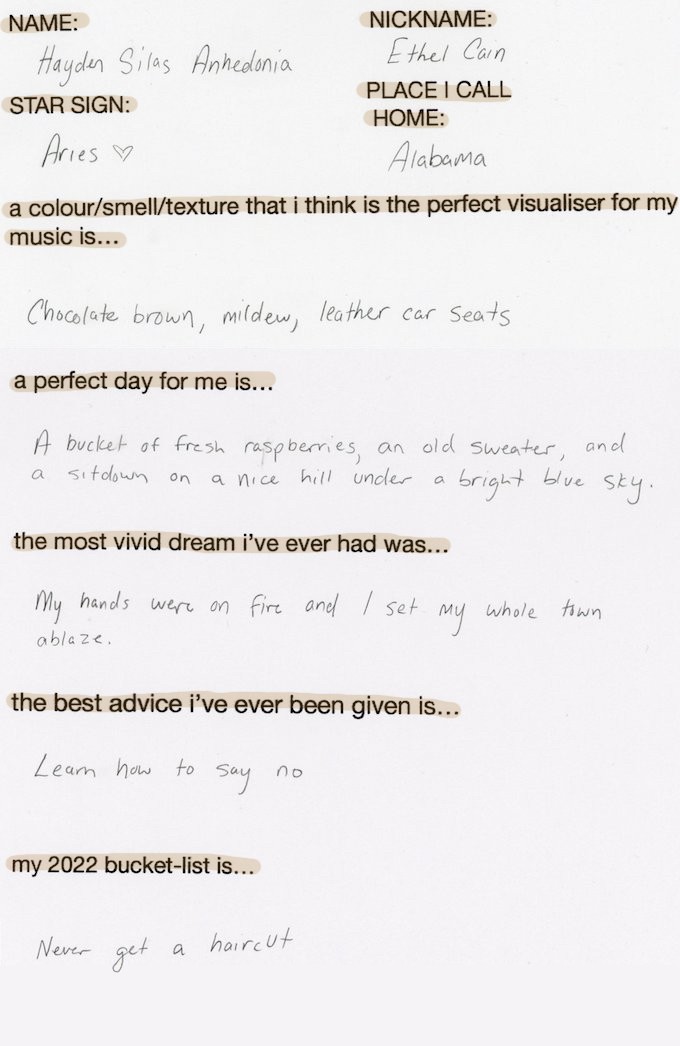 NAME:
Hayden Silas Anhedonia
NICKNAME:
Ethel Cain
STAR SIGN:
Aries ♡
PLACE I CALL
HOME:
Alabama
a colour/smell/texture that i think is the perfect visualiser for my
music is...
Chocolate brown, mildew, leather car seats
a perfect day for me is...
A bucket of fresh raspberries, an old sweater, and
a sitdown on a nice hill under a bright blue sky.
the most vivid dream i've ever had was...
My hands were on fire and I set my whole town
ablaze.
the best advice i've ever been given is...
Learn how to say no
my 2022 bucket-list is...
Never get a haircut